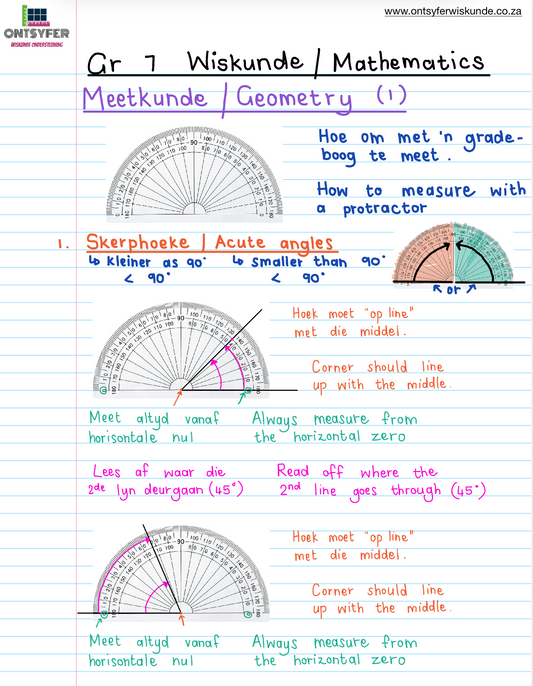 www.ontsyferwiskunde.co.za
ONTSYFER
WISKUNDE ONDERSTEUNING
Gr 7 Wiskunde / Mathematics
Meetkunde / Geometry (1)
Hoe om met 'n grade-
boog te meet.
How to measure with
a protractor
1. Skerphoeke / Acute angles
↳ kleiner as 90° ↳ smaller than 90°
< 90° < 90°
↖ or ↗
Hoek moet "op line"
met die middel.
Corner should line
up with the middle.
Meet altyd vanaf
horisontale nul
Always measure from
the horizontal zero
Lees af waar die
2de lyn deurgaan (45°)
Read off where the
2nd line goes through (45°)
Hoek moet "op line"
met die middel.
Corner should line
up with the middle.
Meet altyd vanaf
horisontale nul
Always measure from
the horizontal zero